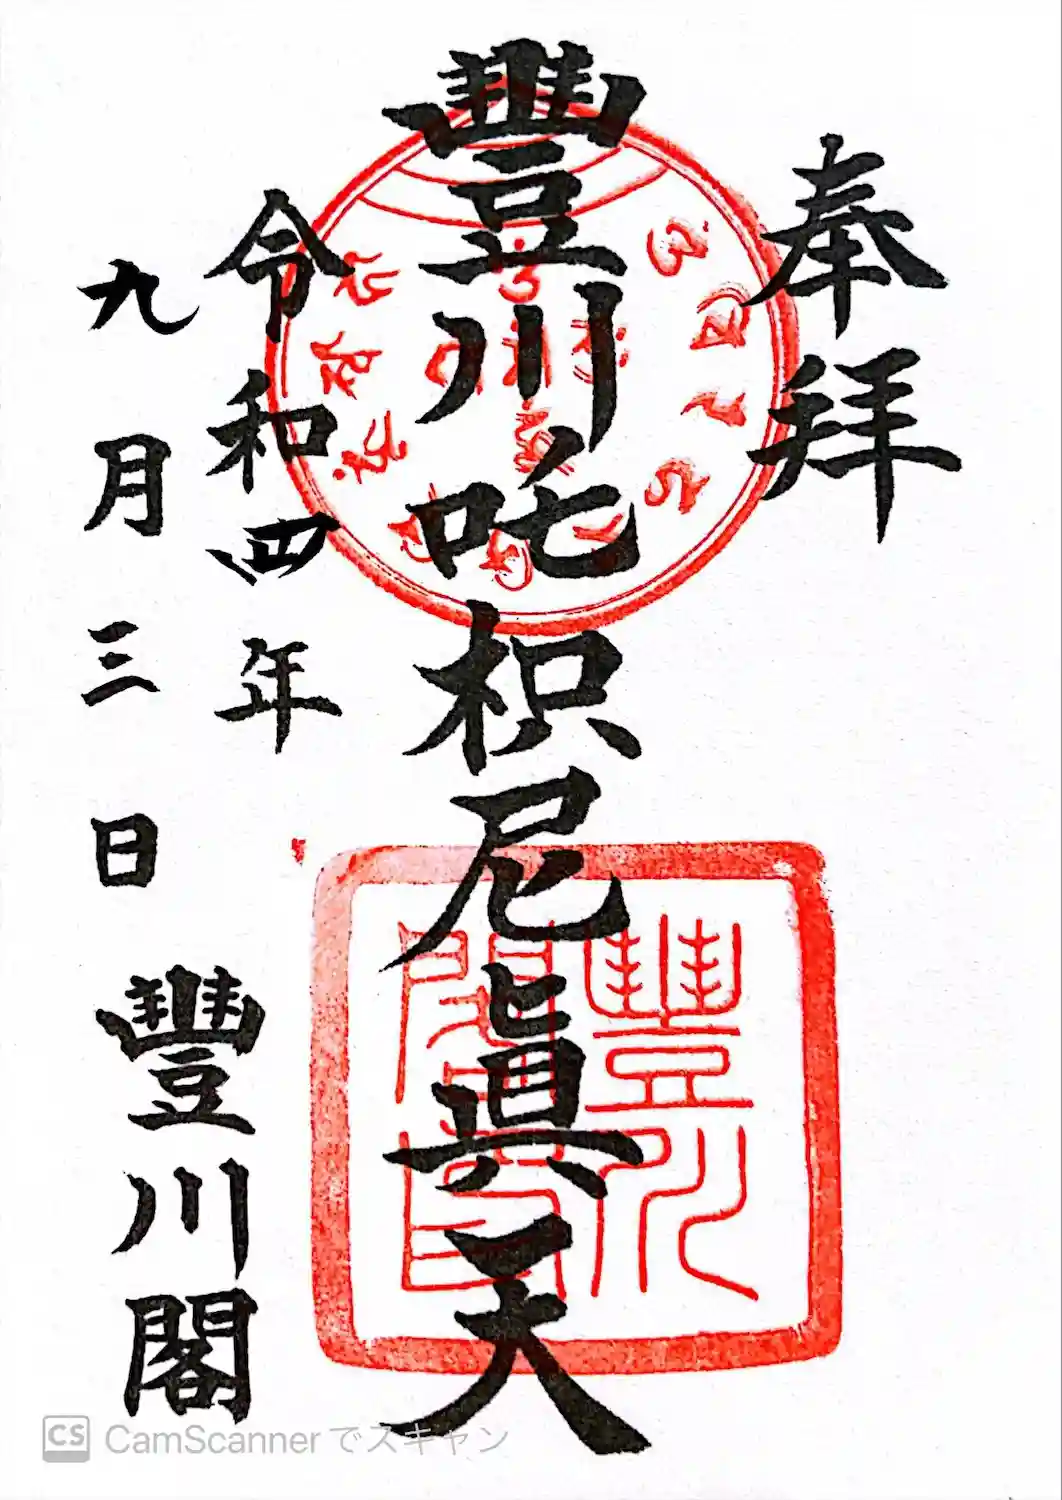 奉拜
豐川吒枳尼眞天
令和四年
九月三日
豐川閣
豐川閣
CS CamScannerでスキャン